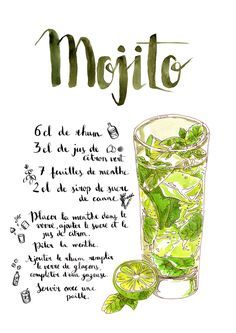 Mojito
6 cl de rhum
3 cl de jus de
citron vert
7 feuilles de menthe
2 cl de sirop de sucre
de canne
Placer la menthe dans le
verre, ajouter le sucre et le
jus de citron.
Piler la menthe.
Ajouter le rhum, remplir
le verre de glaçons,
compléter d'eau gazeuse.
Servir avec une
paille.